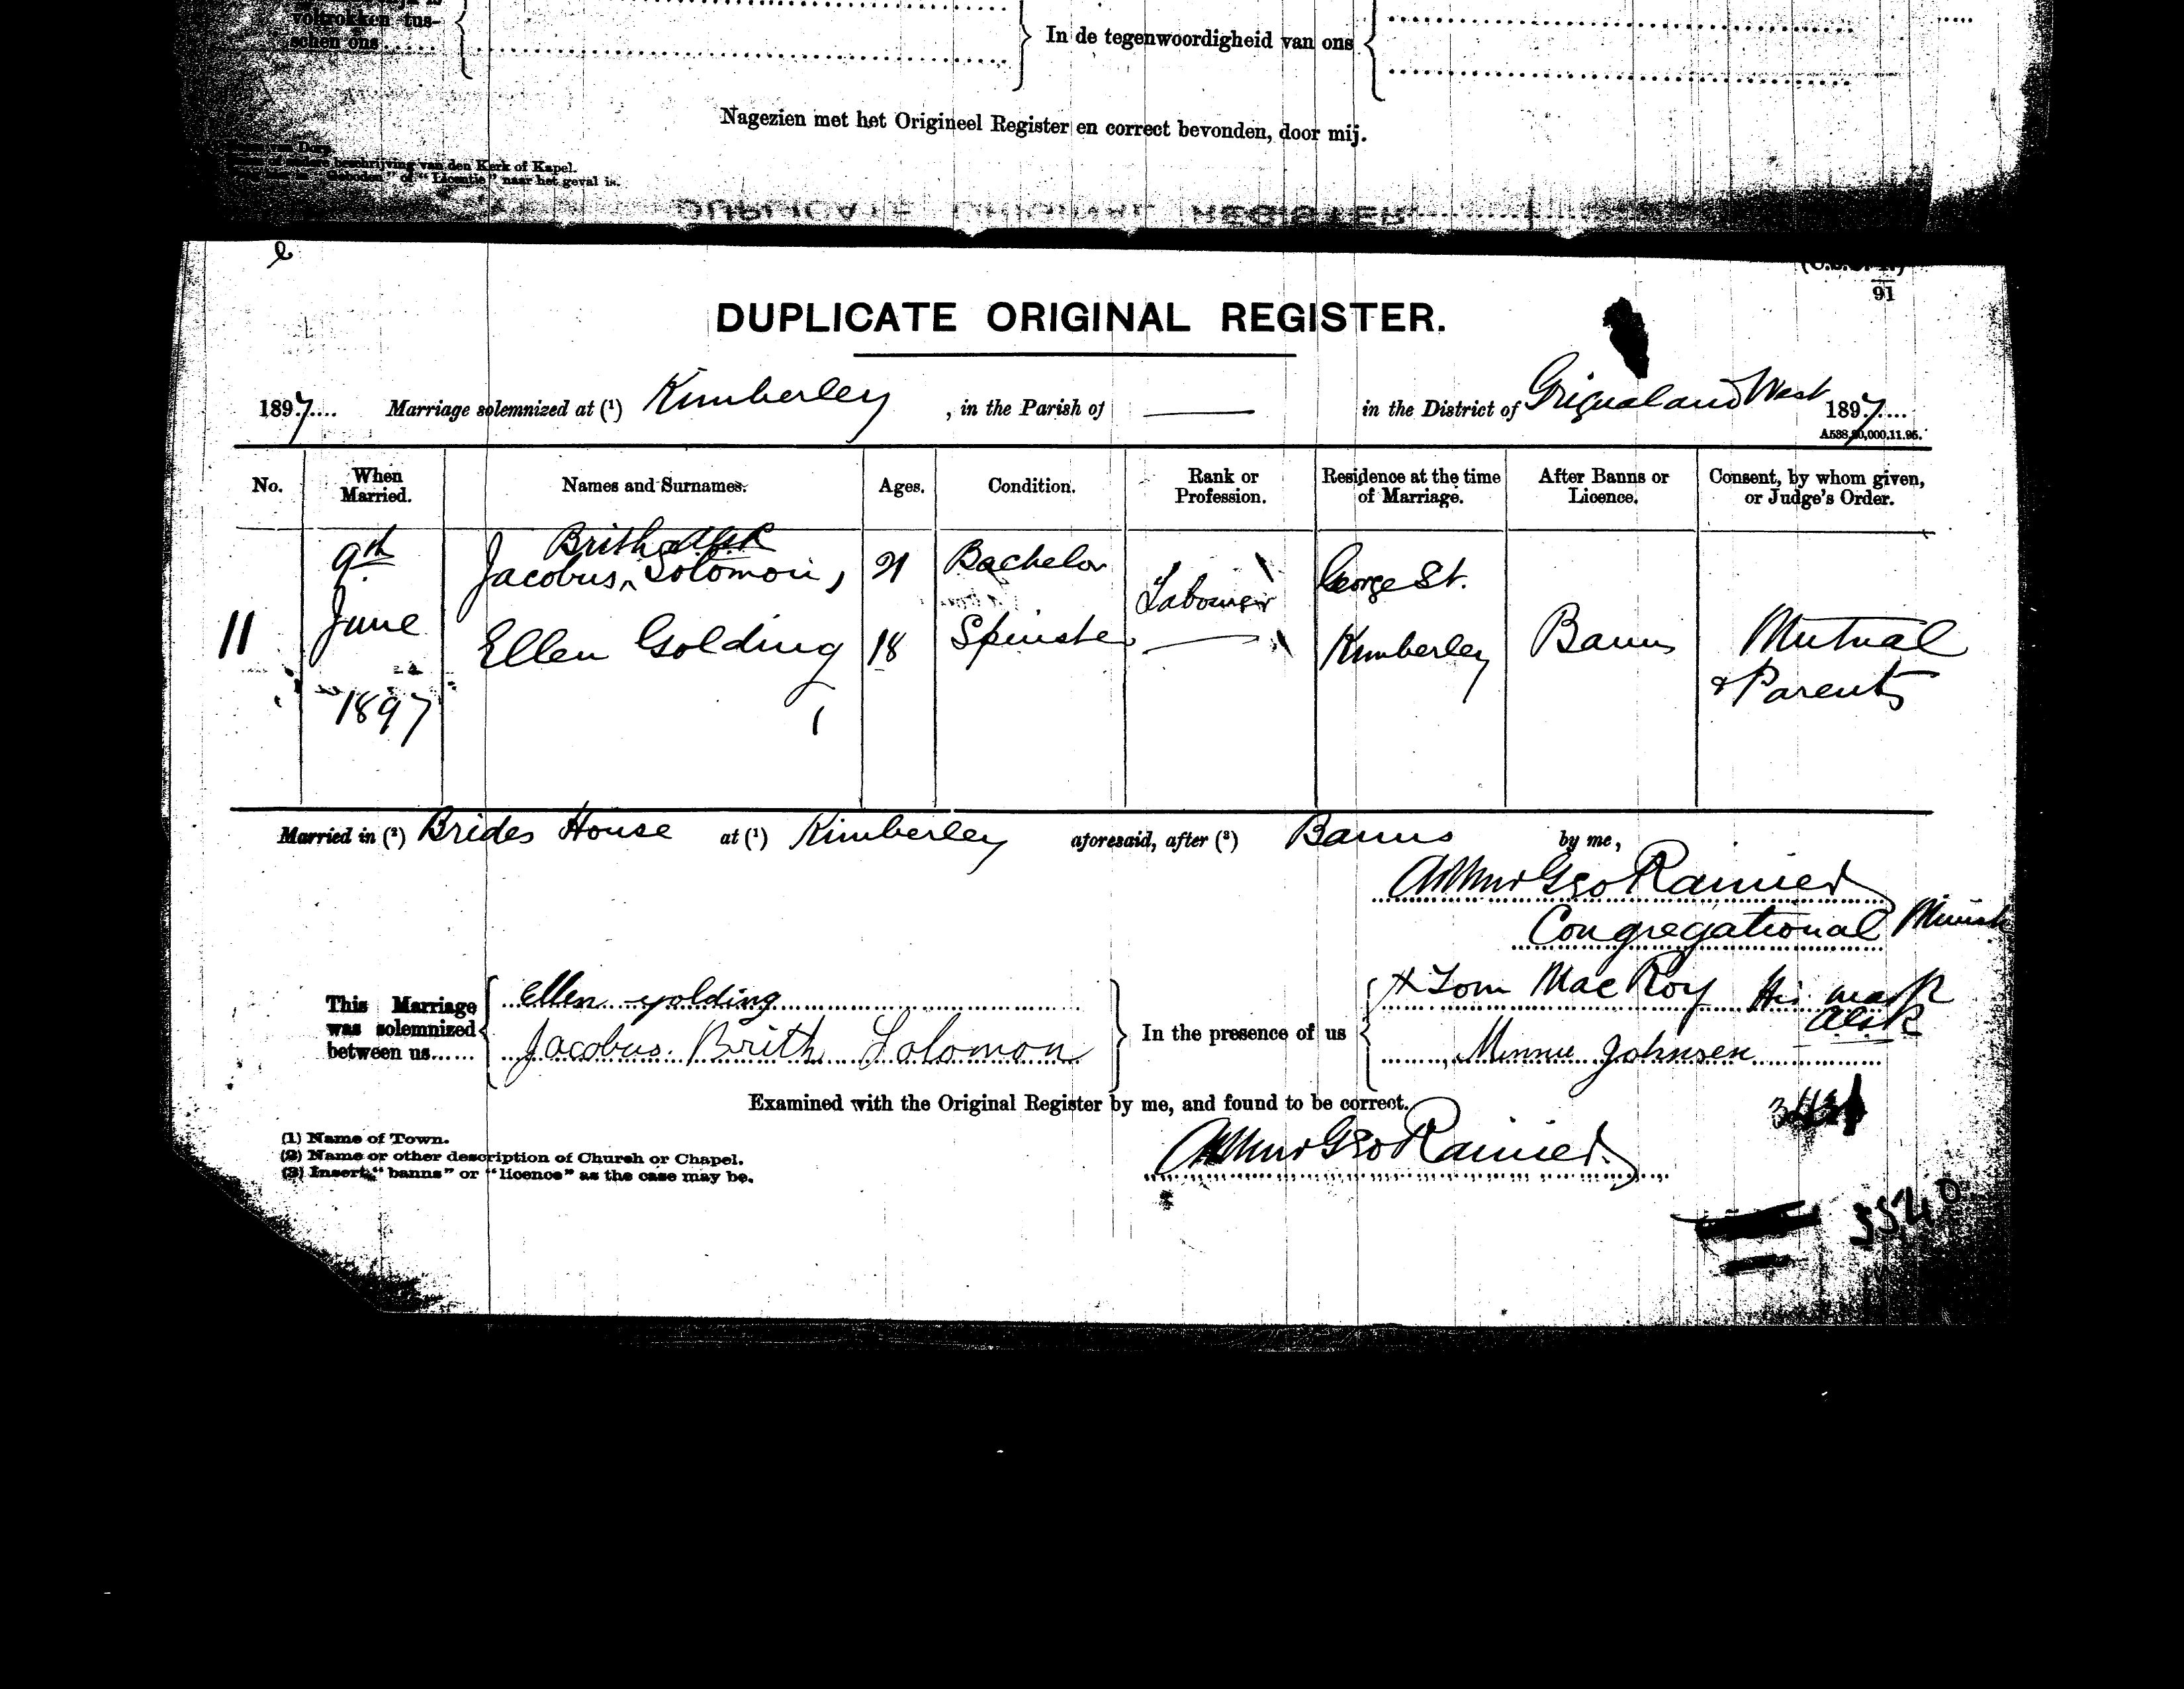 voltrokken tus-
schen ons ......
In de tegenwoordigheid van ons
Nagezien met het Origineel Register en correct bevonden, door mij.
beschrijving van den Kerk of Kapel.
of "Licentie" naar het geval is.
DUPLICATE ORIGINAL REGISTER
91
DUPLICATE ORIGINAL REGISTER.
1897.... Marriage solemnized at (1) Kimberley , in the Parish of —— in the District of Griqualand West 1897....
A538.20,000.11.95.
No. When Married. Names and Surnames. Ages. Condition. Rank or Profession. Residence at the time of Marriage. After Banns or Licence. Consent, by whom given, or Judge's Order.
Brith
9th Jacobus, Solomon, 21 Bachelor Labourer George St.
11 June Ellen Golding 18 Spinster — Kimberley Banns Mutual
& Parents
1897
Married in (2) Brides House at (1) Kimberley aforesaid, after (3) Banns by me,
Arthur Geo Rainier
Congregational Minist
This Marriage was solemnized between us......
ellen golding
Jacobus. Brith Solomon
In the presence of us
X Tom MacRoy His mark
Minnie Johnsen
Examined with the Original Register by me, and found to be correct.
Arthur Geo Rainier.
(1) Name of Town.
(2) Name or other description of Church or Chapel.
(3) Insert "banns" or "licence" as the case may be.
3540